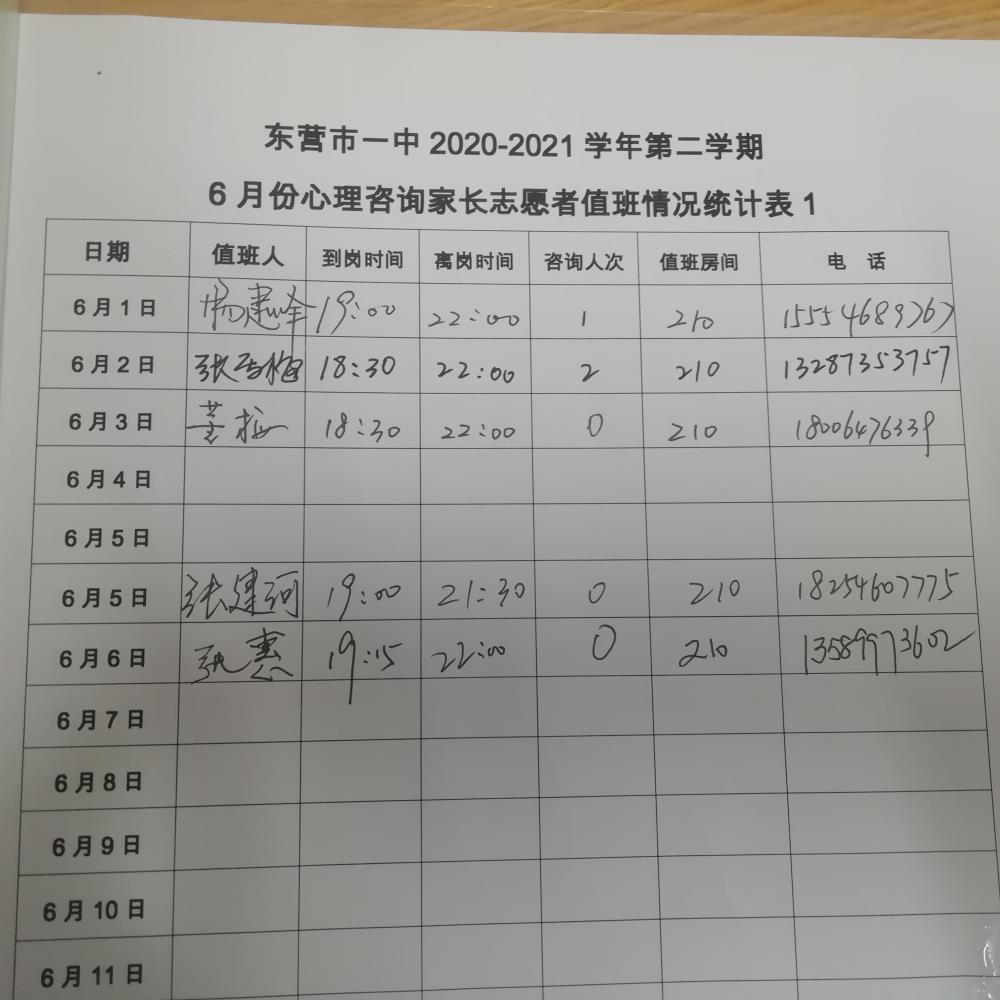 东营市一中 2020-2021 学年第二学期
6 月份心理咨询家长志愿者值班情况统计表 1
日期 值班人 到岗时间 离岗时间 咨询人次 值班房间 电 话
6 月 1 日 杨建峰 19:00 22:00 1 210 15554689767
6 月 2 日 张香梅 18:30 22:00 2 210 13287353757
6 月 3 日 董梅 18:30 22:00 0 210 18006476339
6 月 4 日
6 月 5 日
6 月 5 日 张建河 19:00 21:30 0 210 18254607775
6 月 6 日 张惠 19:15 22:00 0 210 13589973602
6 月 7 日
6 月 8 日
6 月 9 日
6 月 10 日
6 月 11 日